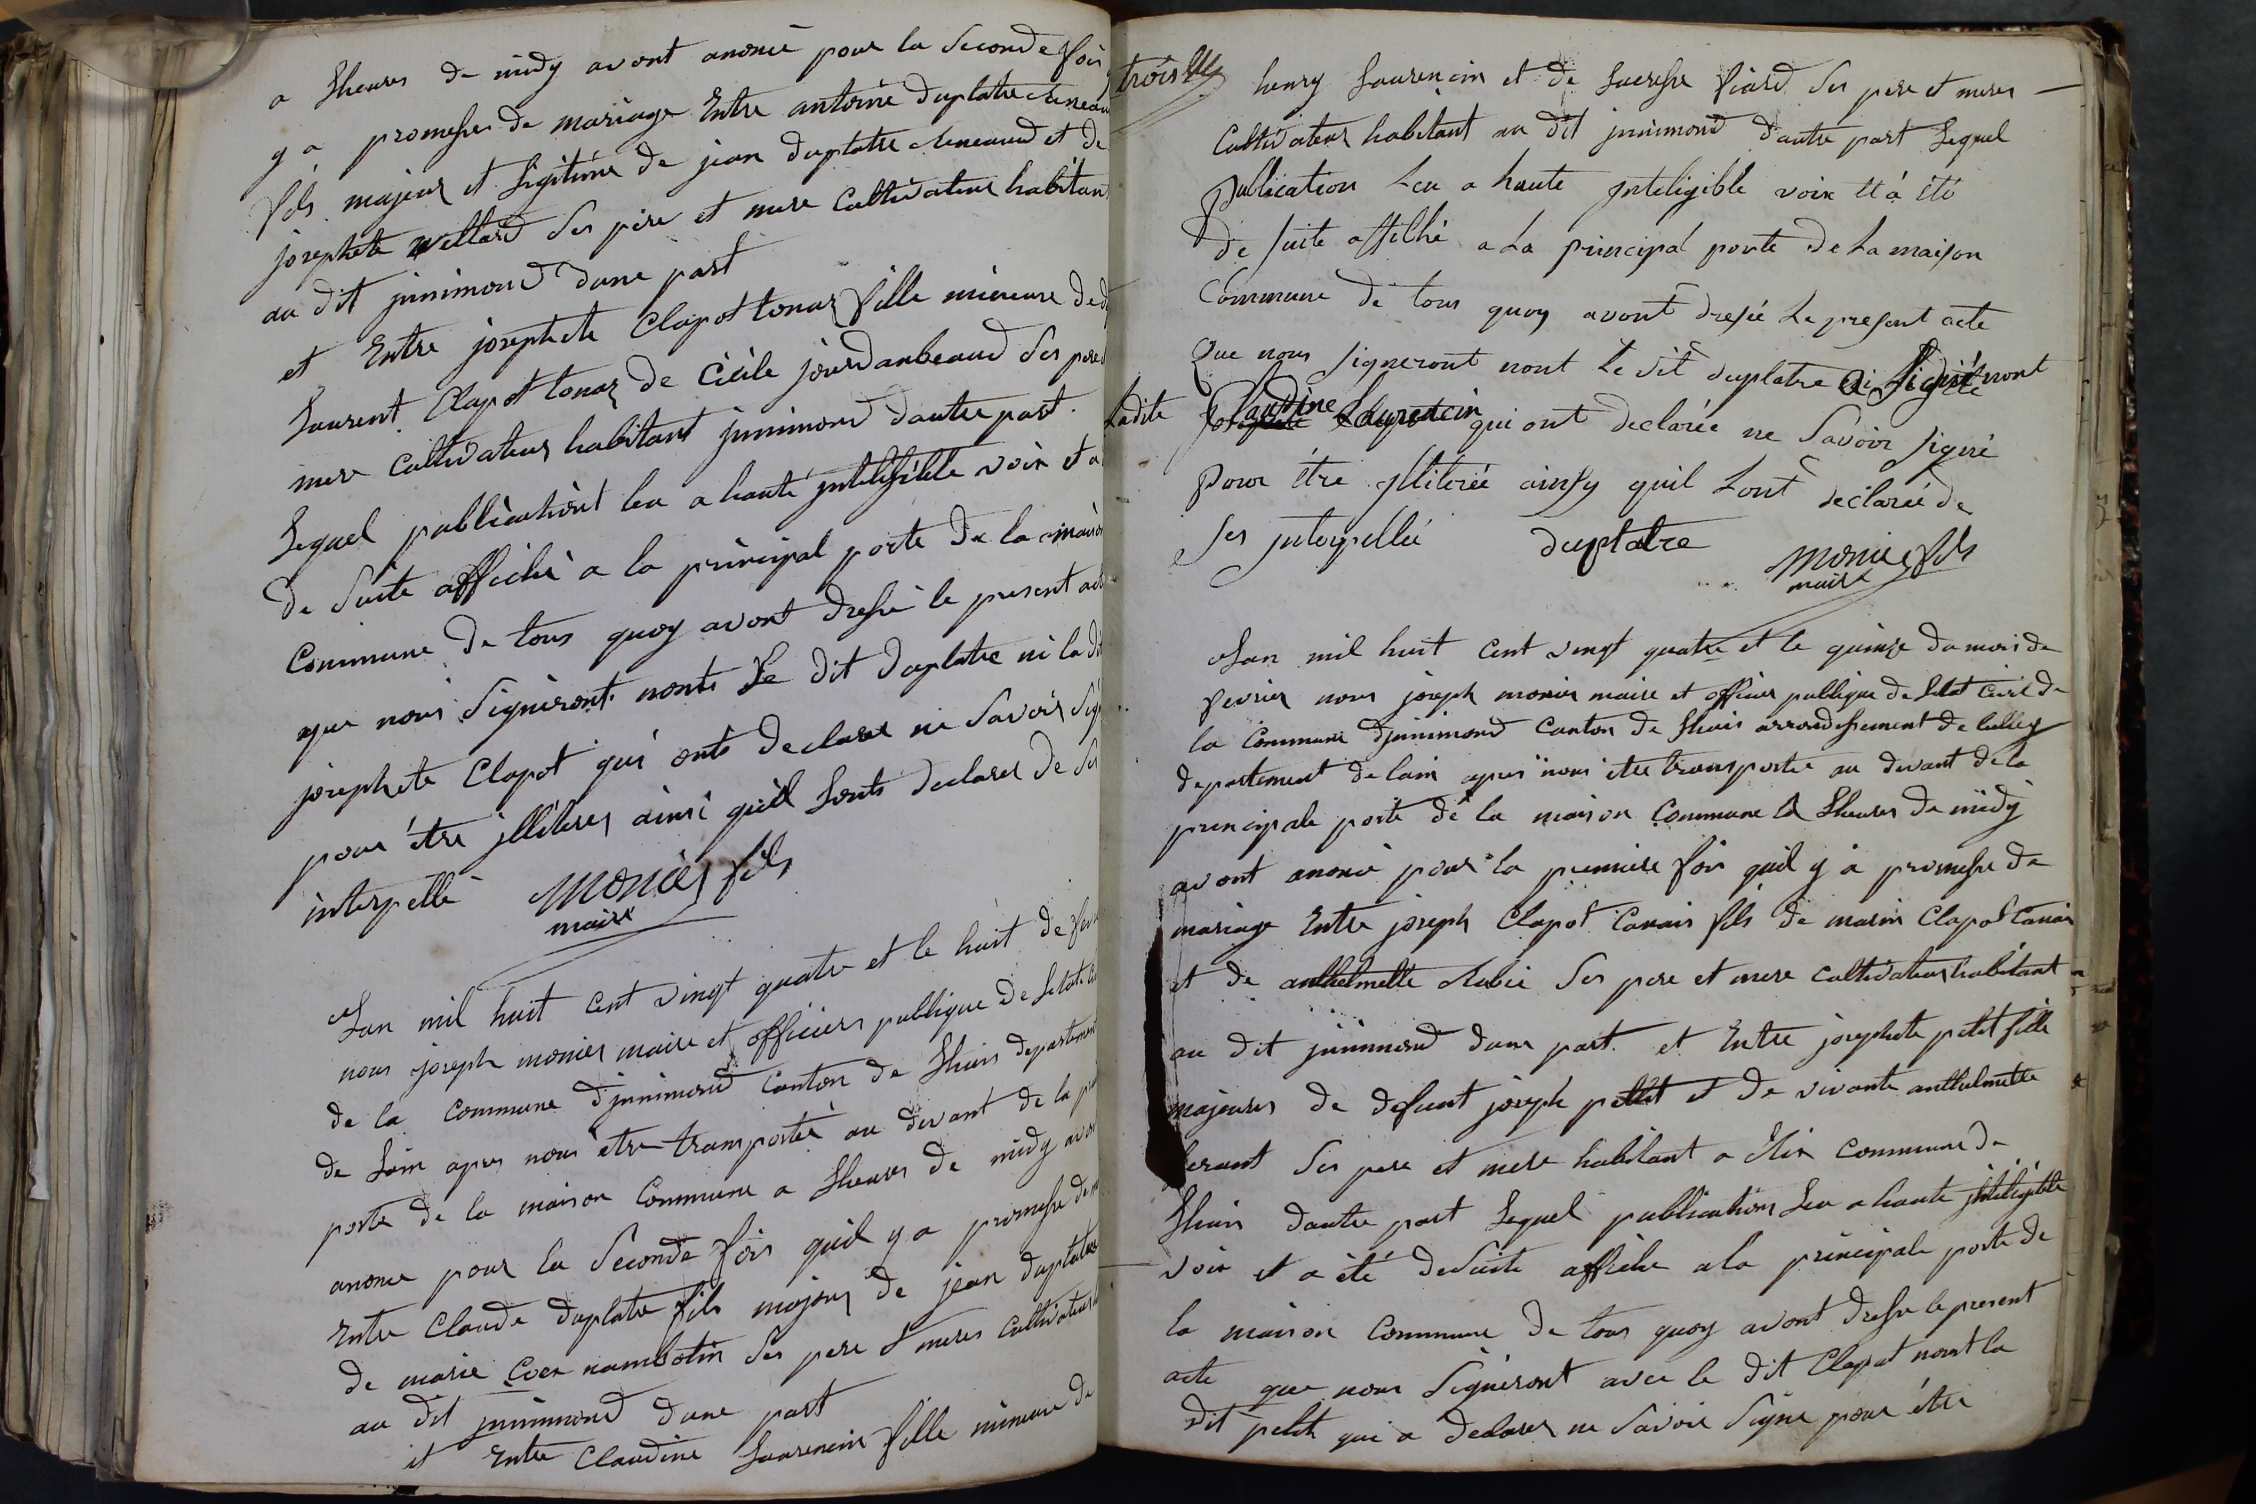 a Lheures de midy avont anoncé pour la Seconde fois
y a promesse de mariage Entre antoine duplatre
fils majeur et Ligitime de jean duplatre et de
josephete Ses père et mere Cultivateur habitant
au dit junimond dune part
et Entre josephete Clapot tonaz fille mineure de
Laurent Clapot tonaz de Cécile jourdanbeaud Ses pere
mere Cultivateur habitant junimond dautre part.
Lequel publicationt leu a haute inteligible voix et a
de Suite affiché a la principal porte de la maison
Commune de tous quoy avont dressé le present acte
que nous Signeront nonts Le dit duplatre ni la dit
josephete Clapot qui onts declaré ne Savoir Sig
pour être jlliteres ainsi quil Lonts declarer de Ses
interpellé Monier fils
maire
Lan mil huit Cent vingt quatre et le huit de
nous joseph monier maire et officiers publique de Letat
de la Commune djunimond Canton de Lhuis departement
de Lain apres nous être transporté au devant de la
porte de la maison Commune a Lheures de midy avont
anoncé pour la Seconde fois quil y a promesse de
Entre Claude duplatre fils majeur de jean duplatre
de marie Coen nambotin Ses pere et meres Cultivateur
au dit junimond dune part
et Entre Claudine Laurencin fille mineure de
trois
henry Laurencin et de Lucresse Ses pere et meres
Cultivateur habitant au dit junimond dautre part Lequel
Publication Leu a haute jnteligible voix et à été
De suite affiché a La principal porte de La maison
Commune de tous quoy avont dressé Le present acte
Que nous signeront nont Le dit duplatre a Signé nont
Ladite Claudine Laurencin qui ont declarée ne Savoir signé
Pour être jlliterée ainsy quil Lont declarée de
Ses jnterpellée duplatre Monier fils
maire
Lan mil huit Cent vingt quatre et le quinze du mois de
fevrier nous joseph monier maire et officier publique de Letat Civil de
la Commune djunimond Canton de Lhuis arrondissement de belley
departement de lain apres nous être transporté au devant de la
principale porte de la maison Commune a Lheures de midy
avont anoncé pour la premiere fois quil y a promesse de
mariage Entre joseph Clapot Canair fils de marin Clapot Canair
et de anthelmette Ses pere et mere cultivateur habitant
au dit junimond dune part. et Entre josephete petit fille
majeures de defunt joseph petit et de vivante anthelmette
Ses pere et mere habitant a Commune de
Lhuis dautre part Lequel publications Leu a haute jnteligible
voix et a été deSuite affiche ala principale porte de
la maison Commune de tous quoy avont dresse le present
acte que nous Signeront avec le dit Clapot nont la
dit petit qui a declarer ne Savoir Signe pour être